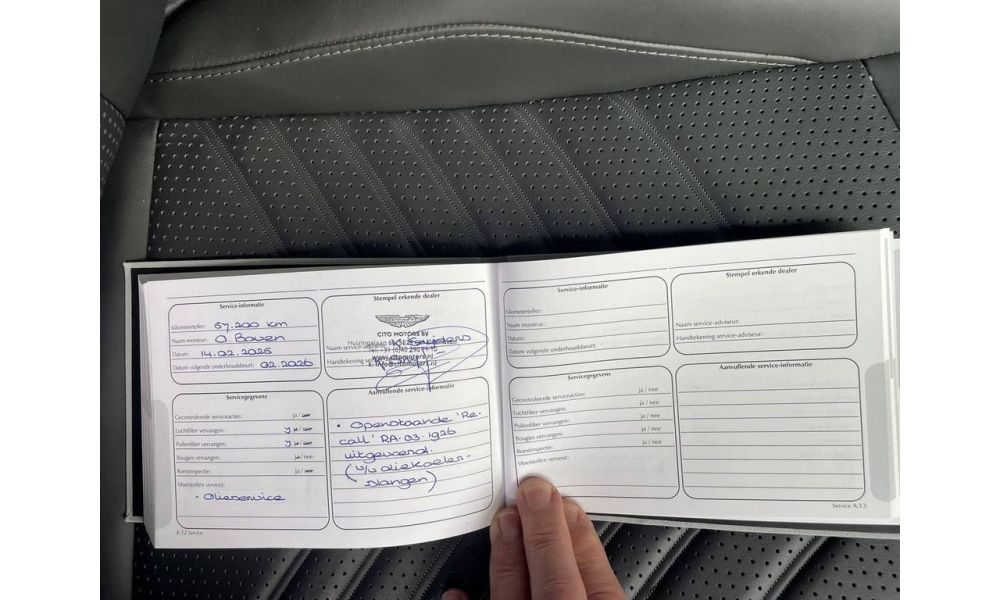 Service-informatie
Kilometerteller: 57.200 km
Naam monteur: O Boven
Datum: 14.02.2025
Datum volgende onderhoudsbeurt: 02.2026
Stempel erkende dealer
CITO MOTORS BV
Huizingalaan
Naam service-adviseur:
Handtekening service
www.citomotors.nl
E: info@citomotors.nl
Servicegegevens
Gecontroleerde serviceacties: ja / nee
Luchtfilter vervangen: ja / nee
Pollenfilter vervangen: ja / nee
Bougies vervangen: ja / nee
Roestinspectie: ja / nee
Vloeistoffen ververst:
- Olieservice
Aanvullende service-informatie
• Openstaande 'Re-
call' RA.03.1926
uitgevoerd.
(v/v oliekoeler-
slangen)
A.12 Service
Service-informatie
Kilometerteller:
Naam monteur:
Datum:
Datum volgende onderhoudsbeurt:
Stempel erkende dealer
Naam service-adviseur:
Handtekening service-adviseur:
Servicegegevens
Gecontroleerde serviceacties: ja / nee
Luchtfilter vervangen: ja / nee
Pollenfilter vervangen: ja / nee
Bougies vervangen: ja / nee
Roestinspectie: ja / nee
Vloeistoffen ververst:
Aanvullende service-informatie
Service A.13